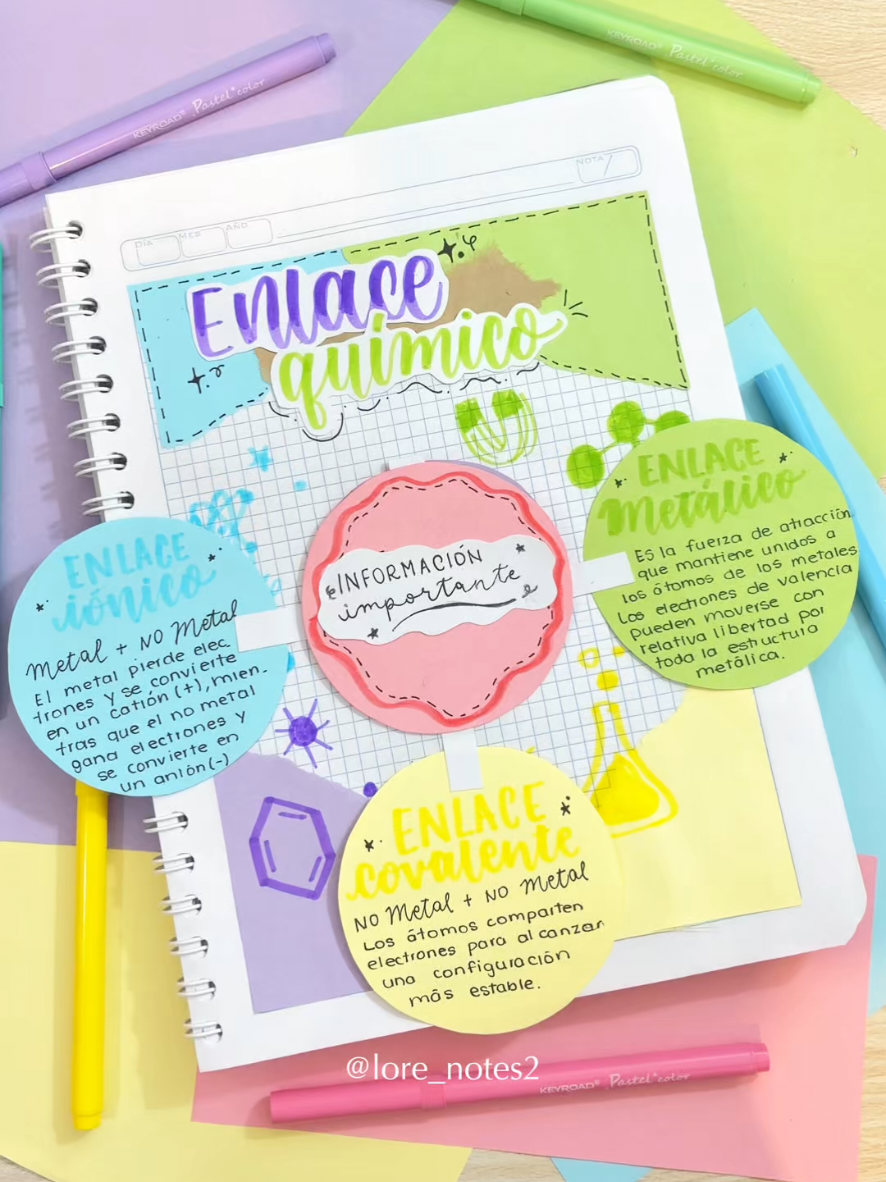 KEYROAD® Pastel*color
KEYROAD® Pastel*color
DÍA
MES
AÑO
NOTA
Enlace
químico
ENLACE
Metálico
Es la fuerza de atracción
que mantiene unidos a
los átomos de los metales
Los electrones de valencia
pueden moverse con
relativa libertad por
toda la estructura
metálica.
INFORMACIÓN
importante
ENLACE
iónico
Metal + NO Metal
El metal pierde elec
trones y se convierte
en un catión (+), mien-
tras que el no metal
gana electrones y
se convierte en
un anión (-)
ENLACE
covalente
NO Metal + NO Metal
Los átomos comparten
electrones para alcanzar
una configuración
más estable.
@lore_notes2
KEYROAD® Pastel*color